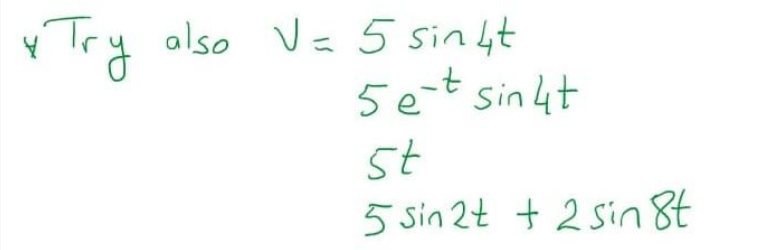 * Try also V = 5 sin 4t
5 e^-t sin 4t
5t
5 sin 2t + 2 sin 8t